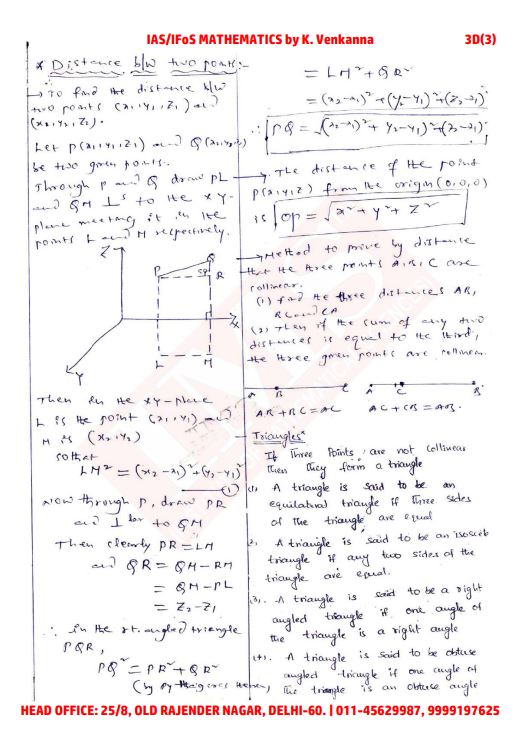 IAS/IFoS MATHEMATICS by K. Venkanna 3D(3)
* Distance b/w two points:-
→ To find the distance b/w
two points (x₁,y₁,z₁) and
(x₂,y₂,z₂).
Let P(x₁,y₁,z₁) and Q(x₂,y₂,z₂)
be two given points.
Through P and Q draw PL
and QM ⊥ˢ to the xy-
plane meeting it in the
points L and M respectively.
Z
Q
P
90°
R
X
L
M
Y
Then in the xy-plane
L is the point (x₁,y₁) and
M is (x₂,y₂)
so that
LM² = (x₂-x₁)²+(y₂-y₁)²
①
Now through P, draw PR
and ⊥lar to QM
Then clearly PR = LM
and QR = QM-RM
= QM-PL
= Z₂-Z₁
∴ in the rt. angled triangle
PQR,
PQ² = PR²+QR²
(by pythagoras theorem)
= LM²+QR²
= (x₂-x₁)²+(y₂-y₁)²+(z₂-z₁)²
∴ PQ = √(x₂-x₁)²+(y₂-y₁)²+(z₂-z₁)²
→ The distance of the point
P(x,y,z) from the origin (0,0,0)
is OP = √x²+y²+z²
→ Method to prove by distance
that the three points A,B,C are
collinear.
(1) find the three distances AB,
BC and CA
(2) Then if the sum of any two
distances is equal to the third,
the three given points are collinear.
A B C A C B
AB+BC=AC AC+CB=AB.
— Triangles*
If Three Points are not collinear
then they form a triangle
(1). A triangle is said to be an
equilateral triangle if three sides
of the triangle are equal
2. A triangle is said to be an isosceles
triangle if any two sides of the
triangle are equal.
(3). A triangle is said to be a right
angled triangle if one angle of
the triangle is a right angle
(4). A triangle is said to be obtuse
angled triangle if one angle of
the triangle is an obtuse angle
HEAD OFFICE: 25/8, OLD RAJENDER NAGAR, DELHI-60. | 011-45629987, 9999197625